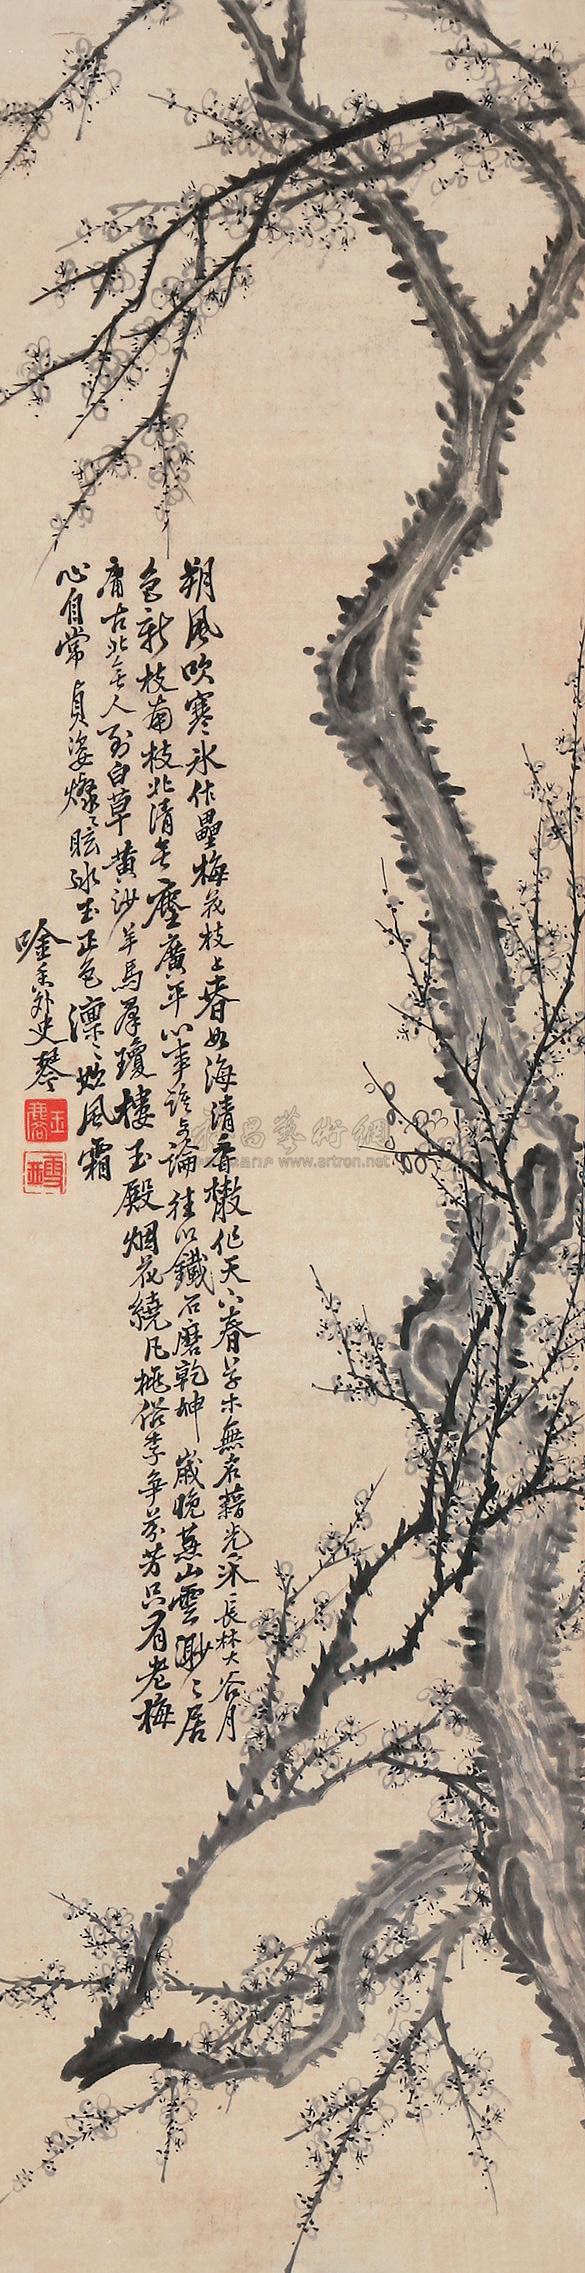 朔風吹寒冰作壘梅花枝上春如海清香散作天下春草木無名藉光采長林大谷月
色新枝南枝北清無塵廣平心事誰與論徒以鐵石磨乾坤歲晚燕山雲渺〻居
庸古北無人到白草黄沙羊馬群瓊樓玉殿烟花繞凡桃俗李争芬芳只有老梅
心自常貞姿燦〻眩冰玉正色凛〻妙風霜
唫香外史琴
www.artron.net